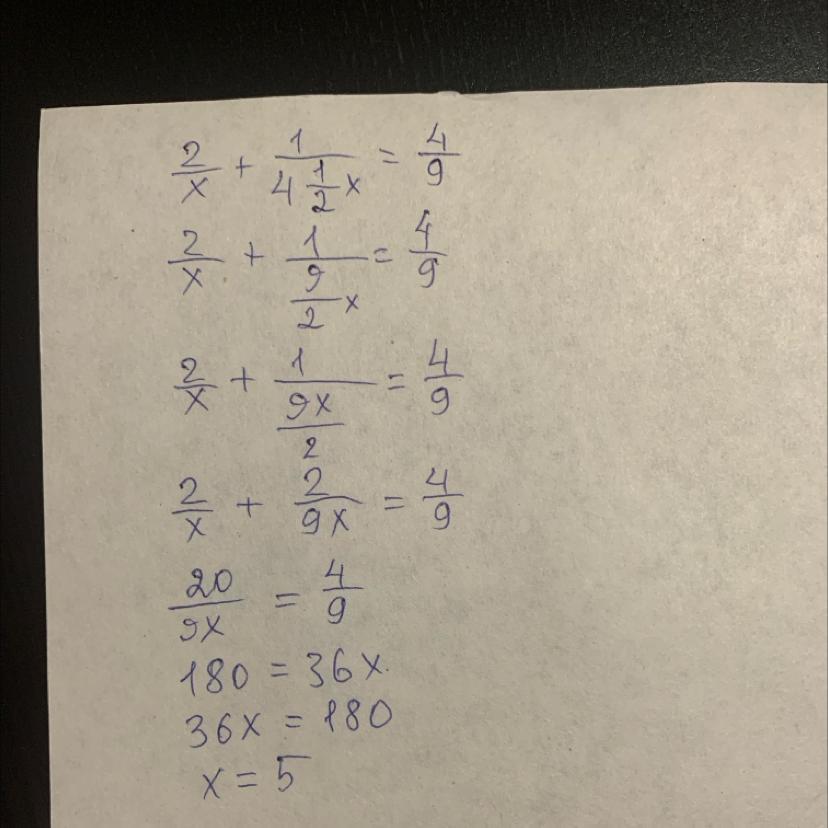 2/x + 1/(4 1/2 x) = 4/9
2/x + 1/(9/2 x) = 4/9
2/x + 1/(9x/2) = 4/9
2/x + 2/9x = 4/9
20/9x = 4/9
180 = 36x
36x = 180
x = 5